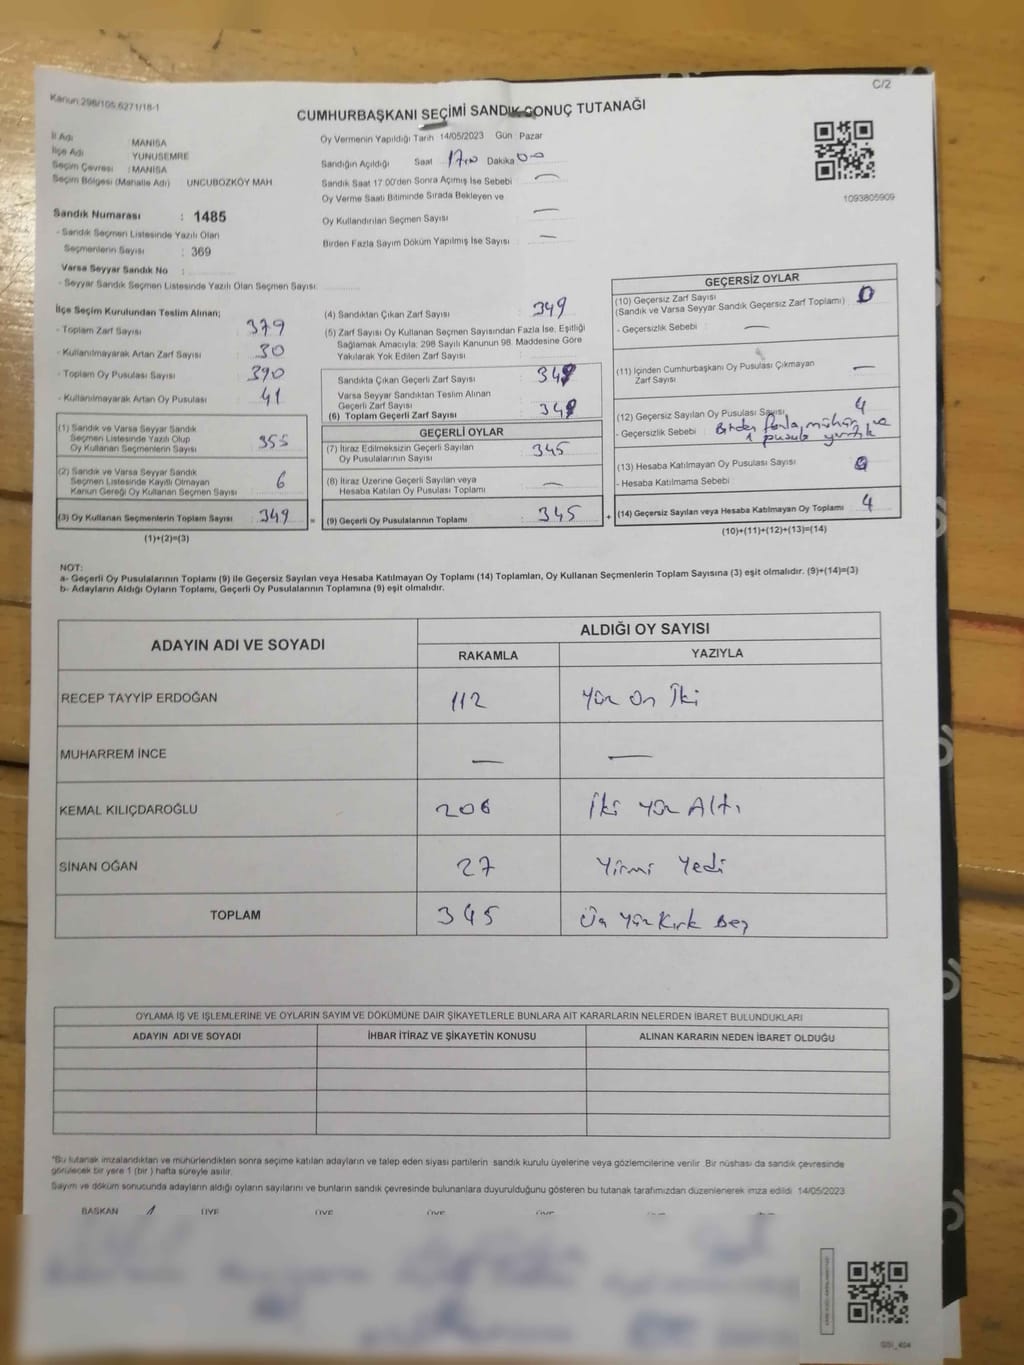 Kanun:298/105,6271/18-1
C/2
CUMHURBAŞKANI SEÇİMİ SANDIK SONUÇ TUTANAĞI
İl Adı : MANİSA
İlçe Adı : YUNUSEMRE
Seçim Çevresi : MANİSA
Seçim Bölgesi (Mahalle Adı) UNCUBOZKÖY MAH
Sandık Numarası : 1485
- Sandık Seçmen Listesinde Yazılı Olan
Seçmenlerin Sayısı : 369
Varsa Seyyar Sandık No :
- Seyyar Sandık Seçmen Listesinde Yazılı Olan Seçmen Sayısı:
Oy Vermenin Yapıldığı Tarih 14/05/2023 Gün Pazar
Sandığın Açıldığı Saat 17:00 Dakika 00
Sandık Saat 17.00'den Sonra Açılmış İse Sebebi —
Oy Verme Saati Bitiminde Sırada Bekleyen ve
Oy Kullandırılan Seçmen Sayısı —
Birden Fazla Sayım Döküm Yapılmış İse Sayısı —
1093805909
İlçe Seçim Kurulundan Teslim Alınan;
- Toplam Zarf Sayısı 379
- Kullanılmayarak Artan Zarf Sayısı 30
- Toplam Oy Pusulası Sayısı 390
- Kullanılmayarak Artan Oy Pusulası 41
(1) Sandık ve Varsa Seyyar Sandık
Seçmen Listesinde Yazılı Olup
Oy Kullanan Seçmenlerin Sayısı 355
(2) Sandık ve Varsa Seyyar Sandık
Seçmen Listesinde Kayıtlı Olmayan
Kanun Gereği Oy Kullanan Seçmen Sayısı 6
(3) Oy Kullanan Seçmenlerin Toplam Sayısı 349 =
(1)+(2)=(3)
(4) Sandıktan Çıkan Zarf Sayısı 349
(5) Zarf Sayısı Oy Kullanan Seçmen Sayısından Fazla İse, Eşitliği
Sağlamak Amacıyla; 298 Sayılı Kanunun 98. Maddesine Göre
Yakılarak Yok Edilen Zarf Sayısı
Sandıkta Çıkan Geçerli Zarf Sayısı 349
Varsa Seyyar Sandıktan Teslim Alınan
Geçerli Zarf Sayısı
(6) Toplam Geçerli Zarf Sayısı 349
GEÇERLİ OYLAR
(7) İtiraz Edilmeksizin Geçerli Sayılan
Oy Pusulalarının Sayısı 345
(8) İtiraz Üzerine Geçerli Sayılan veya
Hesaba Katılan Oy Pusulası Toplamı —
(9) Geçerli Oy Pusulalarının Toplamı 345 +
GEÇERSİZ OYLAR
(10) Geçersiz Zarf Sayısı
(Sandık ve Varsa Seyyar Sandık Geçersiz Zarf Toplamı) 0
- Geçersizlik Sebebi : —
(11) İçinden Cumhurbaşkanı Oy Pusulası Çıkmayan
Zarf Sayısı —
(12) Geçersiz Sayılan Oy Pusulası Sayısı 4
- Geçersizlik Sebebi : Birden fazla mühür ve
1 pusula yırtık
(13) Hesaba Katılmayan Oy Pusulası Sayısı 0
- Hesaba Katılmama Sebebi :
(14) Geçersiz Sayılan veya Hesaba Katılmayan Oy Toplamı 4
(10)+(11)+(12)+(13)=(14)
NOT:
a- Geçerli Oy Pusulalarının Toplamı (9) ile Geçersiz Sayılan veya Hesaba Katılmayan Oy Toplamı (14) Toplamları, Oy Kullanan Seçmenlerin Toplam Sayısına (3) eşit olmalıdır. (9)+(14)=(3)
b- Adayların Aldığı Oyların Toplamı, Geçerli Oy Pusulalarının Toplamına (9) eşit olmalıdır.
ADAYIN ADI VE SOYADI
ALDIĞI OY SAYISI
RAKAMLA YAZIYLA
RECEP TAYYİP ERDOĞAN 112 Yüz On İki
MUHARREM İNCE — —
KEMAL KILIÇDAROĞLU 206 İki Yüz Altı
SİNAN OĞAN 27 Yirmi Yedi
TOPLAM 345 Üç Yüz Kırk Beş
OYLAMA İŞ VE İŞLEMLERİNE VE OYLARIN SAYIM VE DÖKÜMÜNE DAİR ŞİKAYETLERLE BUNLARA AİT KARARLARIN NELERDEN İBARET BULUNDUKLARI
ADAYIN ADI VE SOYADI İHBAR İTİRAZ VE ŞİKAYETİN KONUSU ALINAN KARARIN NEDEN İBARET OLDUĞU
*Bu tutanak imzalandıktan ve mühürlendikten sonra seçime katılan adayların ve talep eden siyasi partilerin sandık kurulu üyelerine veya gözlemcilerine verilir. Bir nüshası da sandık çevresinde
görülecek bir yere 1 (bir) hafta süreyle asılır.
Sayım ve döküm sonucunda adayların aldığı oyların sayılarını ve bunların sandık çevresinde bulunanlara duyurulduğunu gösteren bu tutanak tarafımızdan düzenlenerek imza edildi. 14/05/2023
BAŞKAN ÜYE ÜYE ÜYE ÜYE ÜYE ÜYE